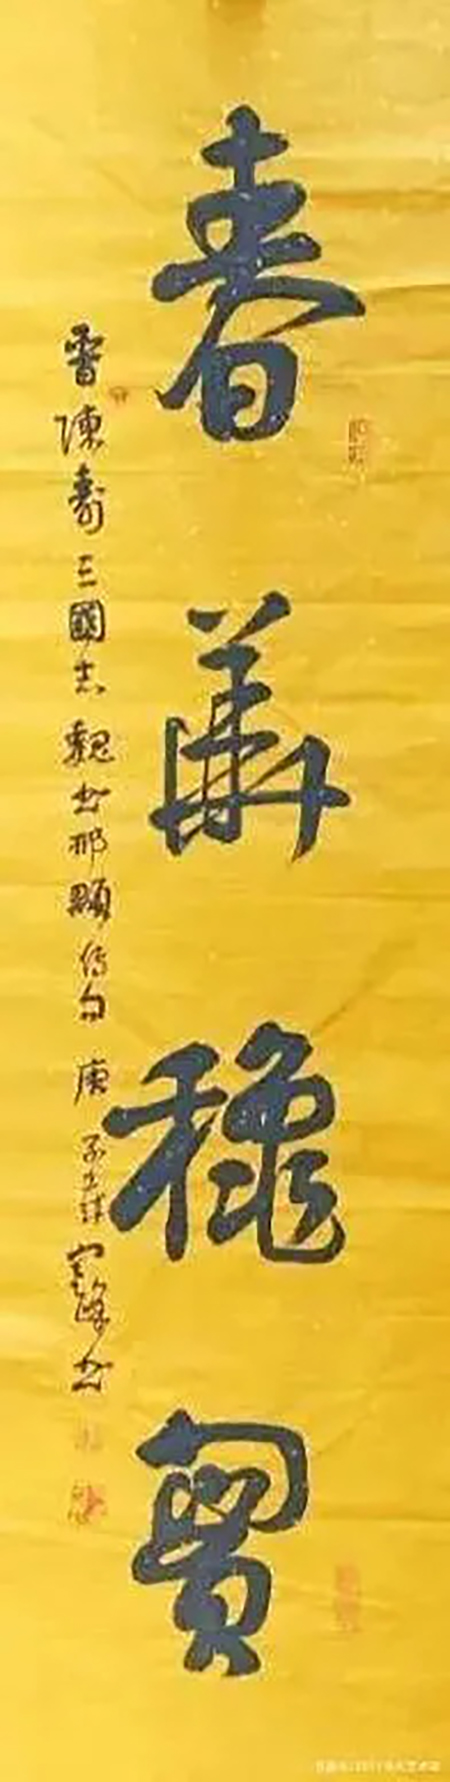 春華秋實
晉陳壽三國志魏書邢顒傳句 庚子 峰書